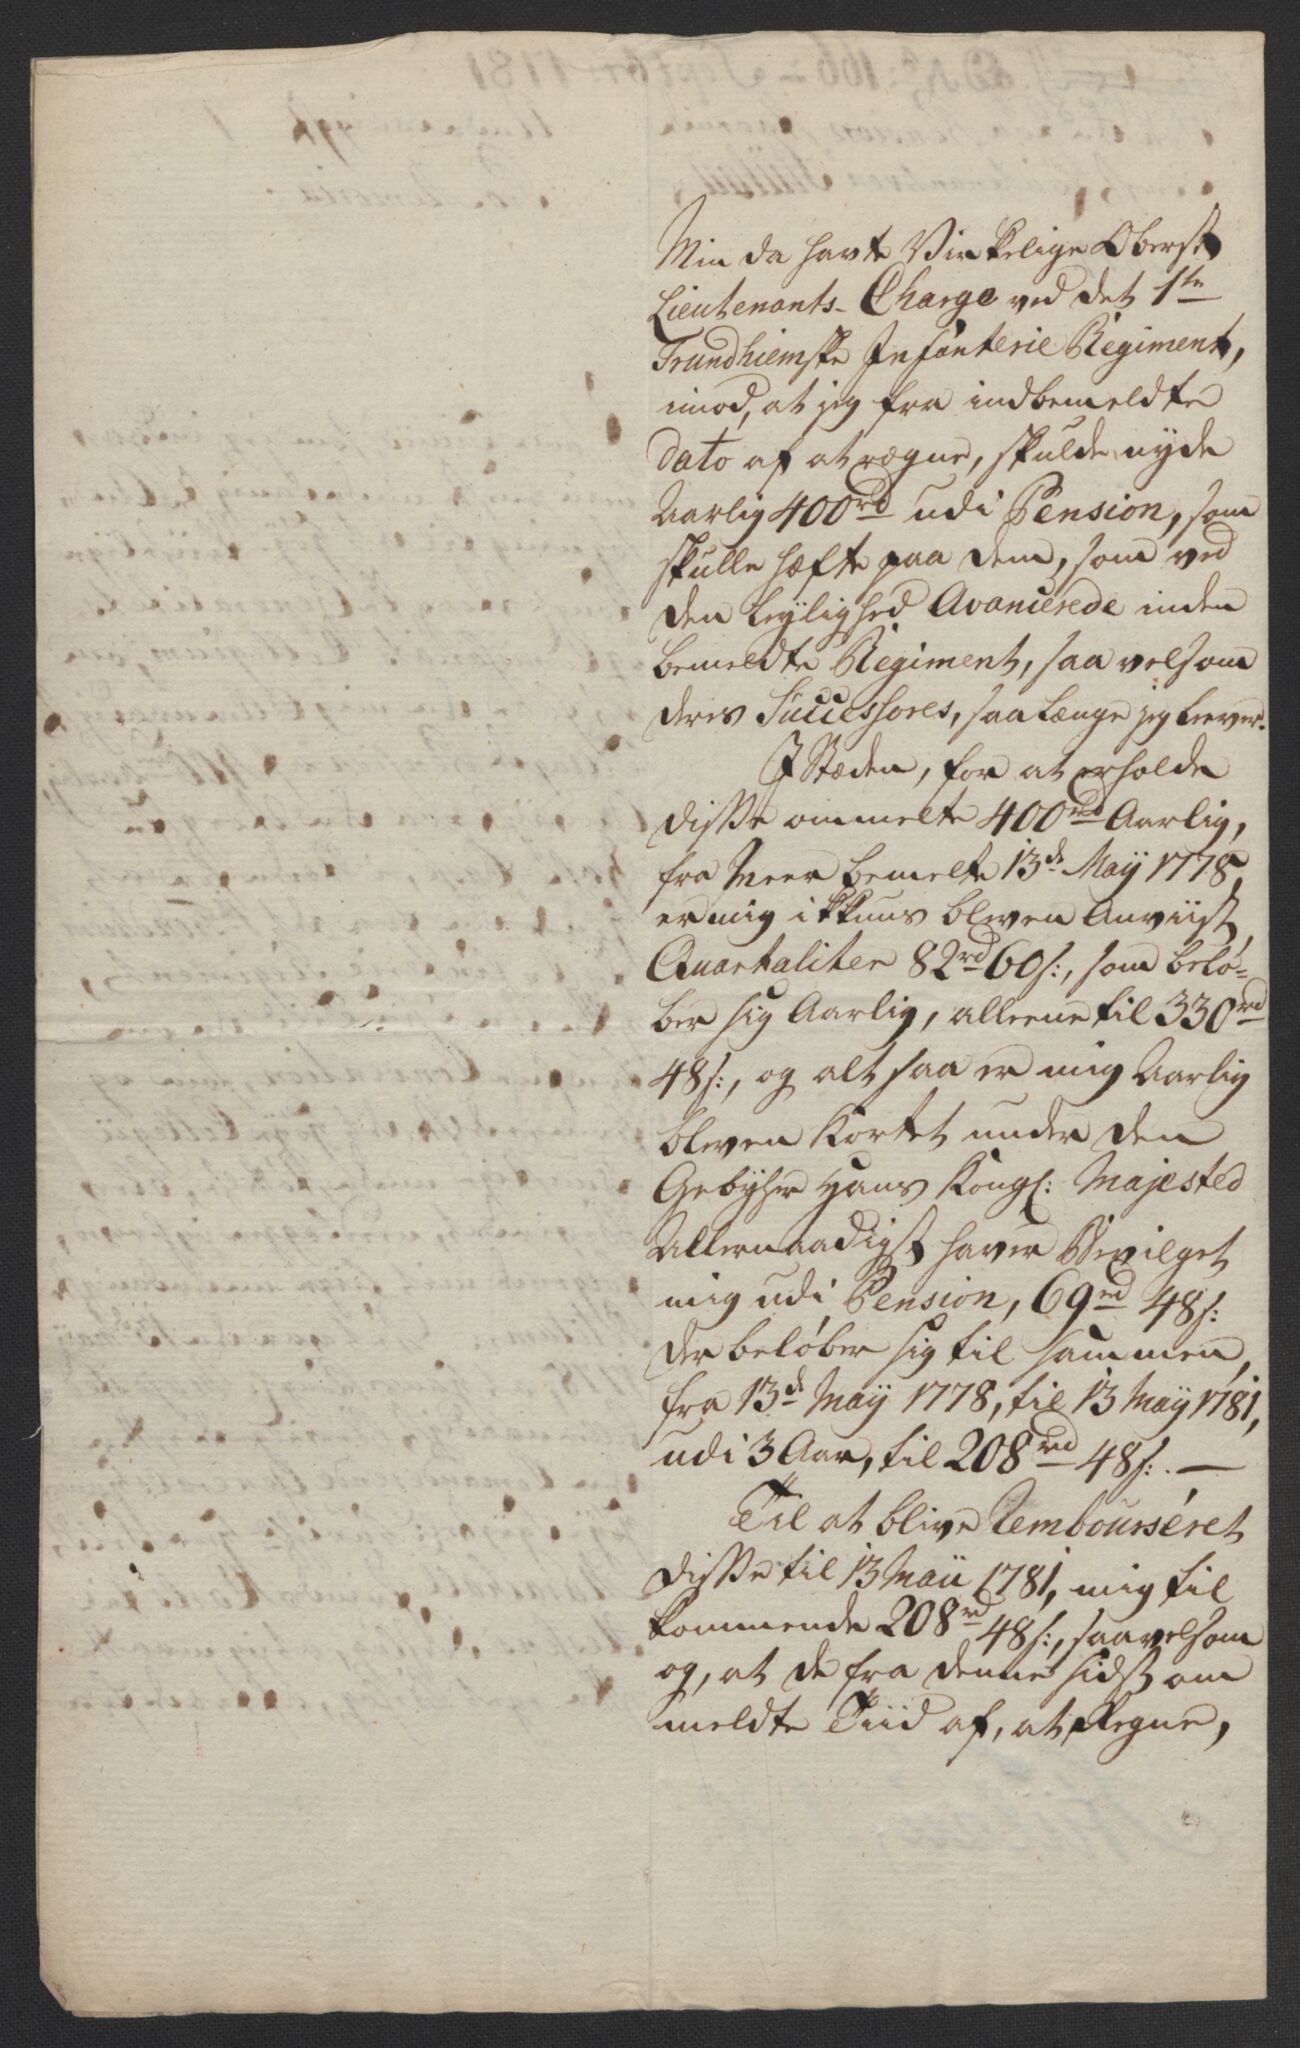 Min da havte Virkelige Oberst
Lieutenants-Charge ved det 1ste
Trundhiemske Infanterie Regiment,
imod, at jeg fra indbemeldte
dato af at regne, skulde nyde
Aarlig 400rd udi Pension, som
skulle hæfte paa dem, som ved
den Leylighed Avancerede inden
bemeldte Regiment, saa velsom
deres Successores, saa Længe jeg Leever.
I Stæden, for at erholde
disse ommelte 400rd Aarlig,
fra Meer bemelte 13de May 1778,
er mig ikkuns bleven Anviist
Quartaliter 82rd 60s:, som belø-
ber sig Aarlig, alleene til 330rd
48s:, og alt saa er mig Aarlig
bleven Kortet under den
Gebyhr Hans Kongl: Majested
Allernaadigst haver Bevilget
mig udi Pension, 69rd 48s:
der beløber sig til sammen,
fra 13de May 1778, til 13 May 1781,
udi 3 Aar, til 208rd 48s:. —
Til at blive Remboursséret
disse til 13 Maii 1781, mig til
kommende 208rd 48s:, saavelsom
og, at de fra denne sidst om
meldte Tiid af, at Regne,